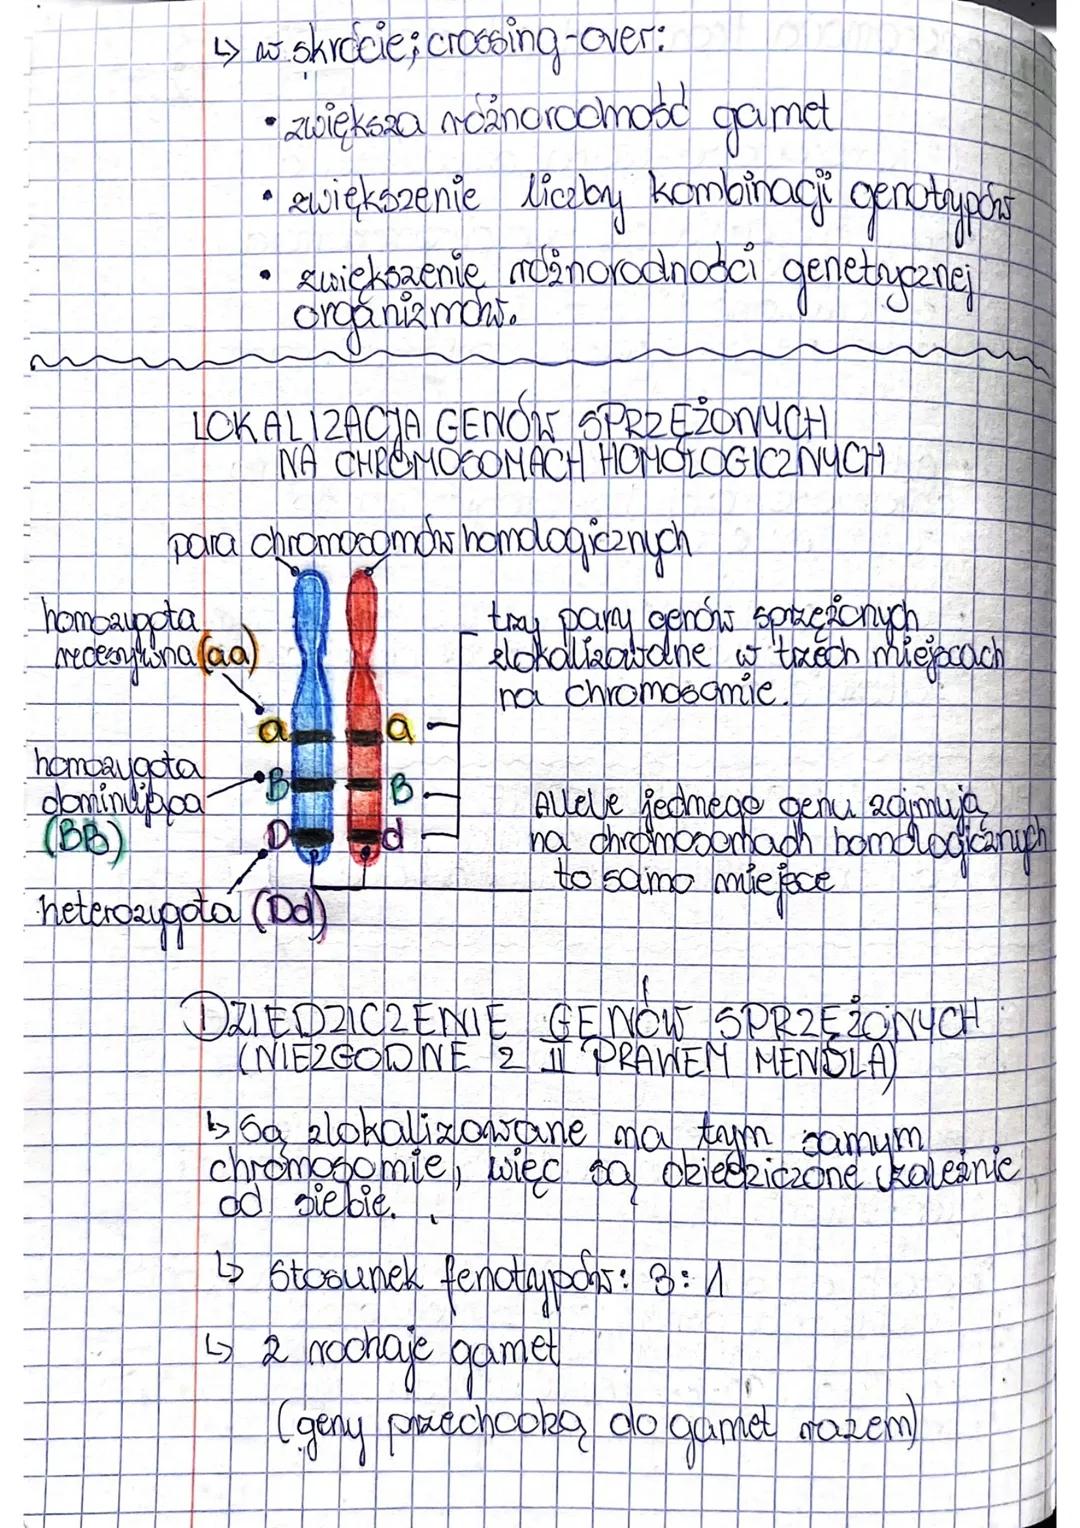 ↳ w skrócie; crossing-over:
• zwiększa różnorodność gamet
• zwiększenie liczby kombinacji genotypów
• zwiększenie różnorodności genetycznej
organizmów.
LOKALIZACJA GENÓW SPRZĘŻONYCH
NA CHROMOSOMACH HOMOLOGICZNYCH
para chromosomów homologicznych
homozygota
recesywna (aa)
trzy pary genów sprzężonych
zlokalizowane w trzech miejscach
na chromosomie.
a a
homozygota
dominująca
(BB)
B B
Allele jednego genu zajmują
na chromosomach homologicznych
to samo miejsce
D d
heterozygota (Dd)
DZIEDZICZENIE GENÓW SPRZĘŻONYCH
(NIEZGODNE Z II PRAWEM MENDLA)
↳ Są zlokalizowane na tym samym
chromosomie, więc są dziedziczone zależnie
od siebie.
↳ Stosunek fenotypów: 3:1
↳ 2 rodzaje gamet
(geny przechodzą do gamet razem)